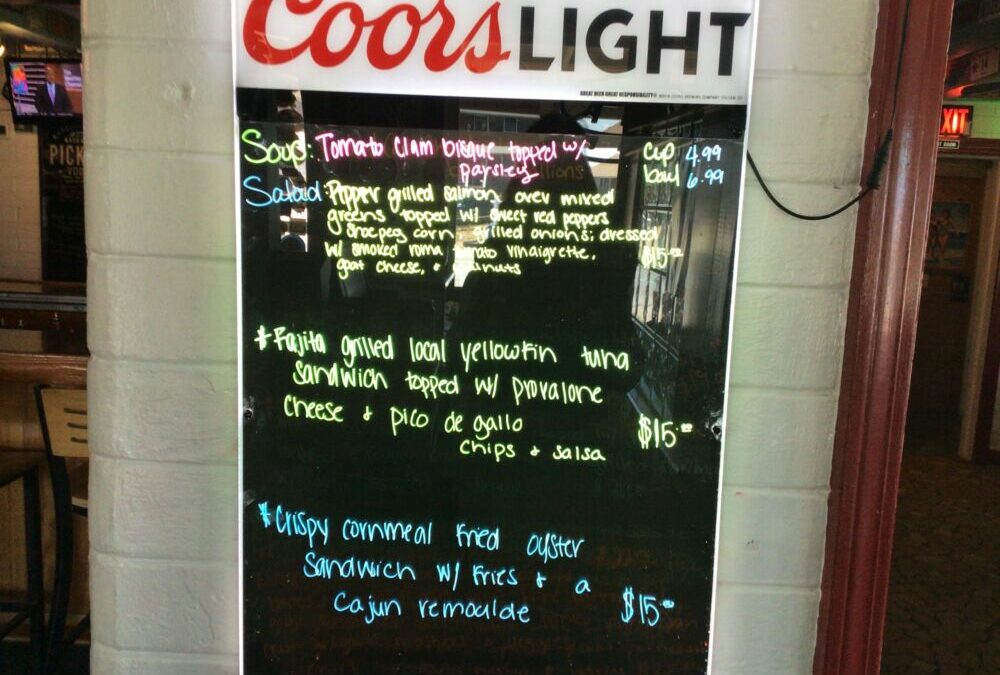 Coors LIGHT
GREAT BEER GREAT RESPONSIBILITY®
PICK
EXIT
Soup: Tomato Clam bisque topped w/ parsley
cup 4.99
bowl 6.99
Salad: Pepper grilled salmon over mixed
greens topped w/ sweet red peppers
shoepeg corn, grilled onions; dressed
w/ smoked roma tomato vinaigrette,
goat cheese, +
$15.00
* Fajita grilled local yellowfin tuna
sandwich topped w/ provalone
cheese + pico de gallo
chips + salsa
$15.00
* Crispy cornmeal fried oyster
sandwich w/ fries + a
cajun remoulde
$15.00